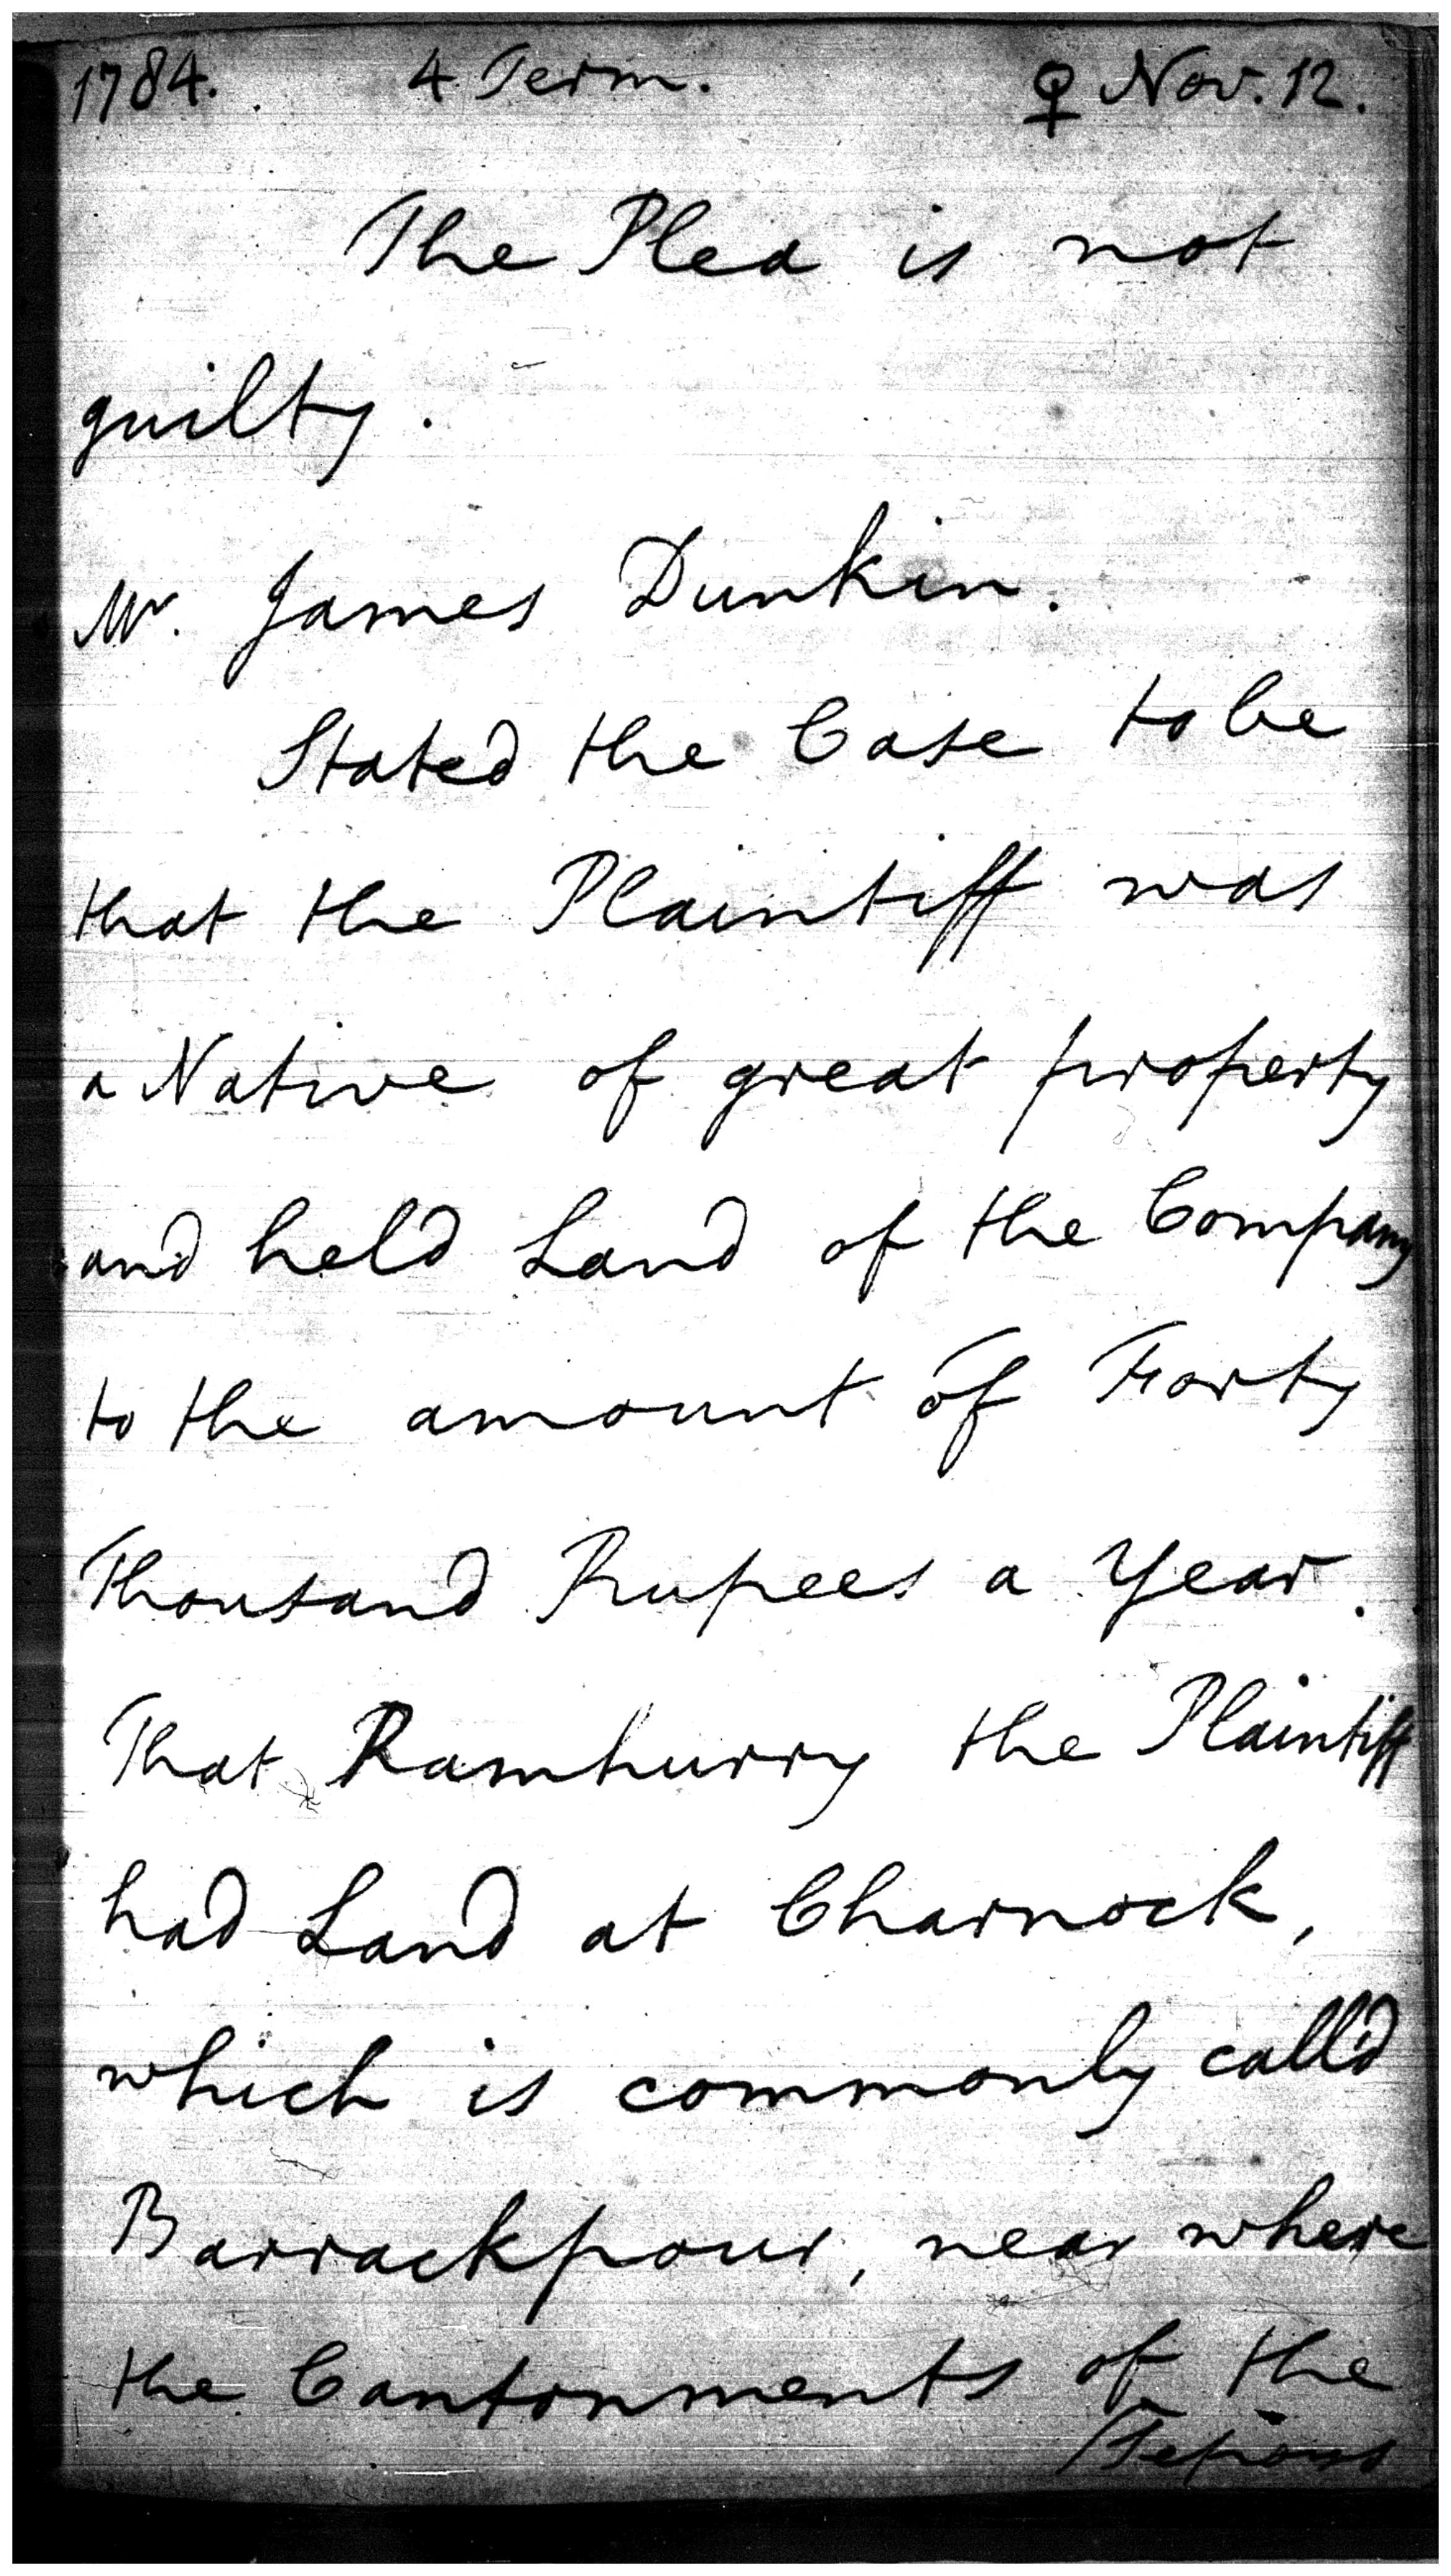 1784. 4 Term. ♀ Nov. 12.
The Plea is not
guilty.
Mr. James Dunkin.
Stated the Case to be
that the Plaintiff was
a Native of great property
and held Land of the Company
to the amount of Forty
Thousand Rupees a Year.
That Ramhurry the Plaintiff
had Land at Charnock,
which is commonly call'd
Barrackpour, near where
the Cantonments of the